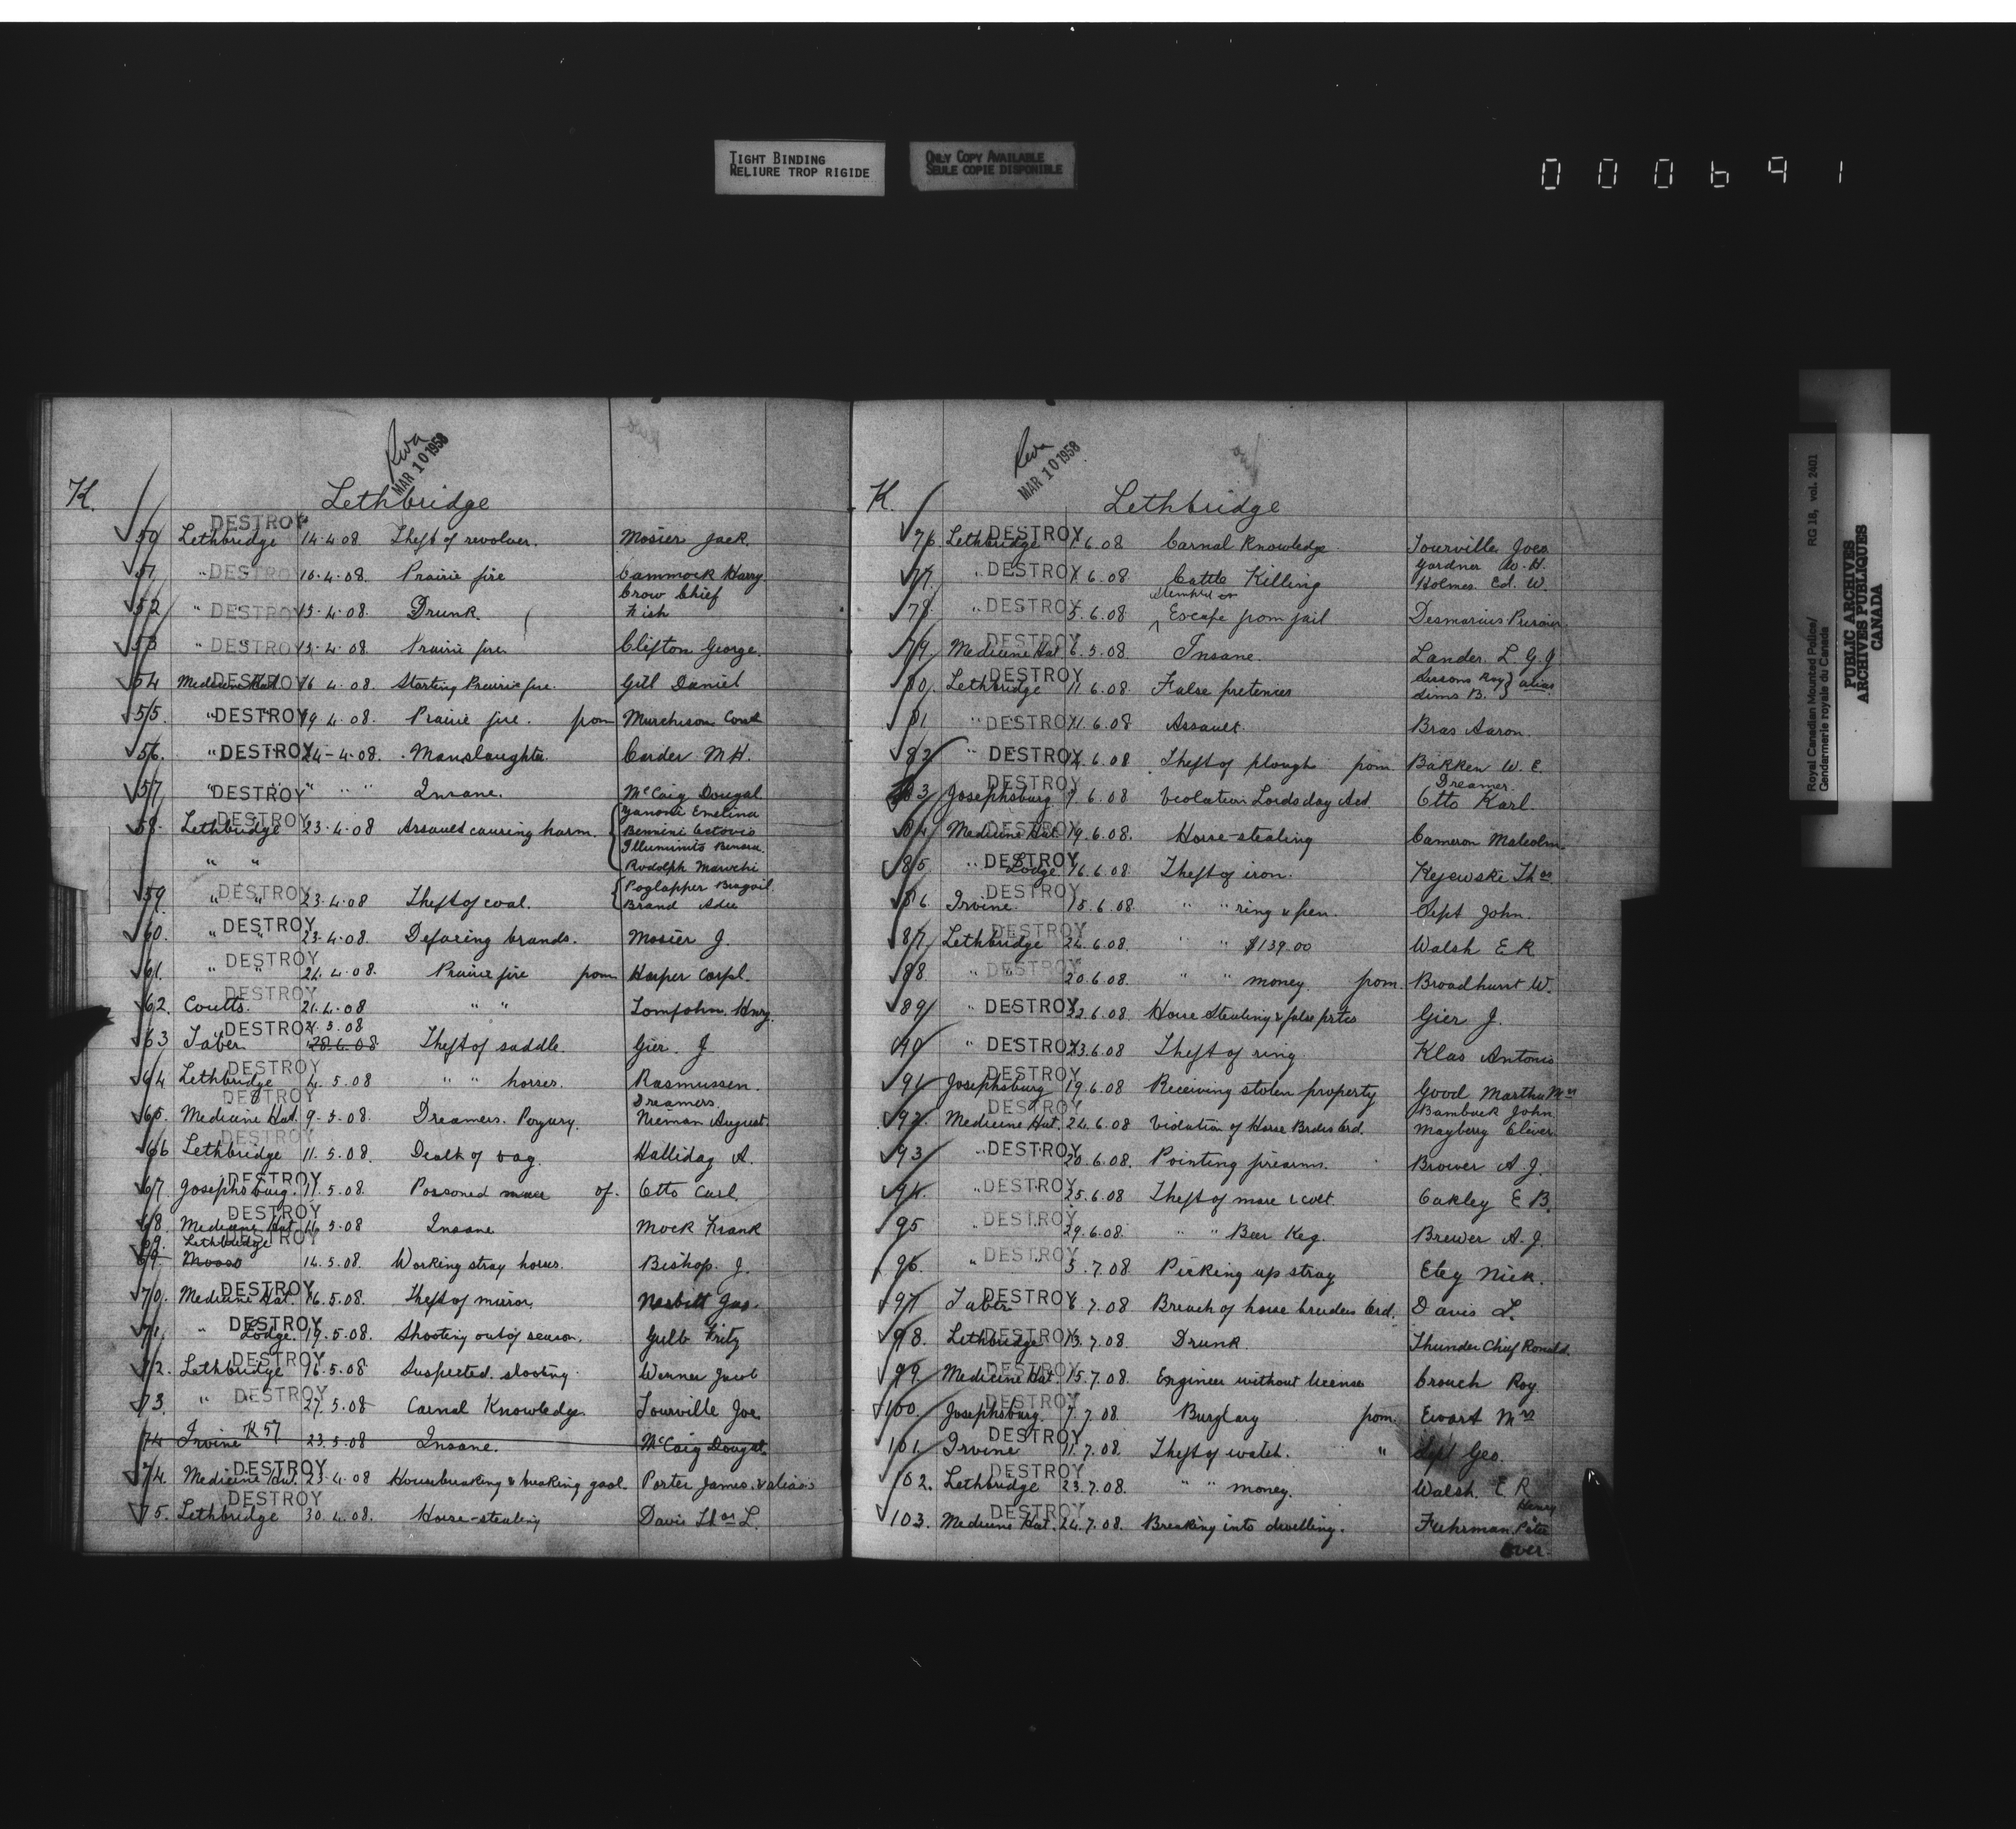 TIGHT BINDING
RELIURE TROP RIGIDE
ONLY COPY AVAILABLE
SEULE COPIE DISPONIBLE
000691
Royal Canadian Mounted Police/ RG 18, vol. 2401
Gendarmerie royale du Canada
PUBLIC ARCHIVES
ARCHIVES PUBLIQUES
CANADA
MAR 10 1958
K. Lethbridge
DESTROY
50 Lethbridge 14.4.08 Theft of revolver. Mosier Jack.
51 " DESTROY 10.4.08. Prairie fire Cammock Harry
Crow Chief
52 " DESTROY 13.4.08. Drunk. Fish
53 " DESTROY 13.4.08. Prairie fire Clifton George.
54 Medicine Hat DESTROY 16 4.08. Starting Prairie fire. Gill Daniel
55 " DESTROY 19.4.08. Prairie fire. from Murchison Const
56. " DESTROY 24-4-08. Manslaughter. Carder M.H.
57 " DESTROY " " " Insane. McCaig Dougal
DESTROY Zanoni Emelina
58. Lethbridge 23.4.08 Assault causing harm. Bennini
Illuminito
" " Rodolph
59. " DESTROY " 23.4.08 Theft of coal. Poglapper
Brand
60. " DESTROY " 23.4.08. Defacing brands. Mosier J.
DESTROY
61. " " 24.4.08. Prairie fire from Harper Corpl.
DESTROY
62. Coutts. 21.4.08 " " Tomjohn. Hnry.
DESTROY 21.5.08
63 Taber. 28.6.08 Theft of saddle. Gier. J
DESTROY
64 Lethbridge 4.5.08 " " horses. Rasmussen.
DESTROY Dreamers.
65. Medicine Hat. 9.5.08. Dreamers. Porgury. Nieman August.
DESTROY
66 Lethbridge 11.5.08. Death of vag. Halliday A.
DESTROY
67 Josephsburg. 11.5.08. Poisoned mare of. Otto Carl.
DESTROY
68. Medicine Hat. 14.5.08 Insane Mock Frank
69. Lethbridge DESTROY
69. 14.5.08. Working stray horses. Bishop. J.
DESTROY
70. Medicine Hat. 16.5.08. Theft of mirror. Nesbitt Jas.
DESTROY
71. " Lodge. 19.5.08. Shooting out of season. Gulb Fritz
DESTROY
72. Lethbridge 16.5.08. Suspected shooting. Werner Jacob
73. " DESTROY 27.5.08 Carnal Knowledge. Tourville Joe
74 Irvine K 57 23.5.08 Insane. McCaig Dougal.
DESTROY
74. Medicine Hat. 23.4.08 Housebreaking & breaking gaol. Porter James. & aliases
DESTROY
75. Lethbridge 30.4.08. Horse-stealing Davis Thos L.
MAR 10 1958
K. Lethbridge
76 Lethbridge DESTROY 1.6.08 Carnal Knowledge Tourville Joe
Gardner W.H.
77. " DESTROY 1.6.08 Cattle Killing Holmes. Ed. W.
attempted
78. " DESTROY 5.6.08. Escape from jail Desmarais
DESTROY
79. Medicine Hat 6.5.08. Insane. Lander. L. G. J
DESTROY Sissons Roy } alias
80. Lethbridge 11.6.08. False pretences Sims B.
81 " DESTROY 11.6.08 Assault. Bras Aaron.
82 " DESTROY 12.6.08. Theft of plough from Bakken W. E.
DESTROY Dreamer.
83 Josephsburg 9.6.08. Violation Lordsday Act. Otto Karl.
84 Medicine Hat. DESTROY 19.6.08. Horse-stealing Cameron Malcolm.
85 " DESTROY Lodge 16.6.08. Theft of iron. Kejewski Thos.
DESTROY
86 Irvine. 15.6.08. " " ring & pen. Sept John.
DESTROY
87 Lethbridge 24.6.08. " " $139.00 Walsh E R
88. " DESTROY 20.6.08. " " money. from. Broadhurst W.
89 " DESTROY 22.6.08. Horse Stealing & false prtcs Gier J.
90 " DESTROY 23.6.08 Theft of ring Klas Antonio
DESTROY
91 Josephsburg 19.6.08 Receiving stolen property Good Martha Mrs
DESTROY Bambuck John
92. Medicine Hat. 24.6.08 Violation of Horse Brdrs Ord. Mayberry Oliver
93 " DESTROY 20.6.08. Pointing firearms. Brower A.J.
94. " DESTROY 25.6.08 Theft of mare & colt. Oakley E B.
95 " DESTROY 29.6.08. " " Beer Keg. Brewer A.J.
96. " DESTROY 3.7.08 Picking up stray Eley Nick.
97 Taber DESTROY 6.7.08 Breach of horse breeders Ord. Davis L.
98. Lethbridge DESTROY 13.7.08. Drunk. Thunder Chief Ronald.
99. Medicine Hat. DESTROY 15.7.08. Engineer without license Crouch Roy
DESTROY
100. Josephsburg. 7.7.08. Burglary from Ewart Mrs
DESTROY
101. Irvine 11.7.08. Theft of watch. " Sept Geo.
DESTROY
102. Lethbridge 23.7.08. " " money. Walsh. E. R
DESTROY Henry
103. Medicine Hat. 24.7.08. Breaking into dwelling. Fuhrman Peter
Over.